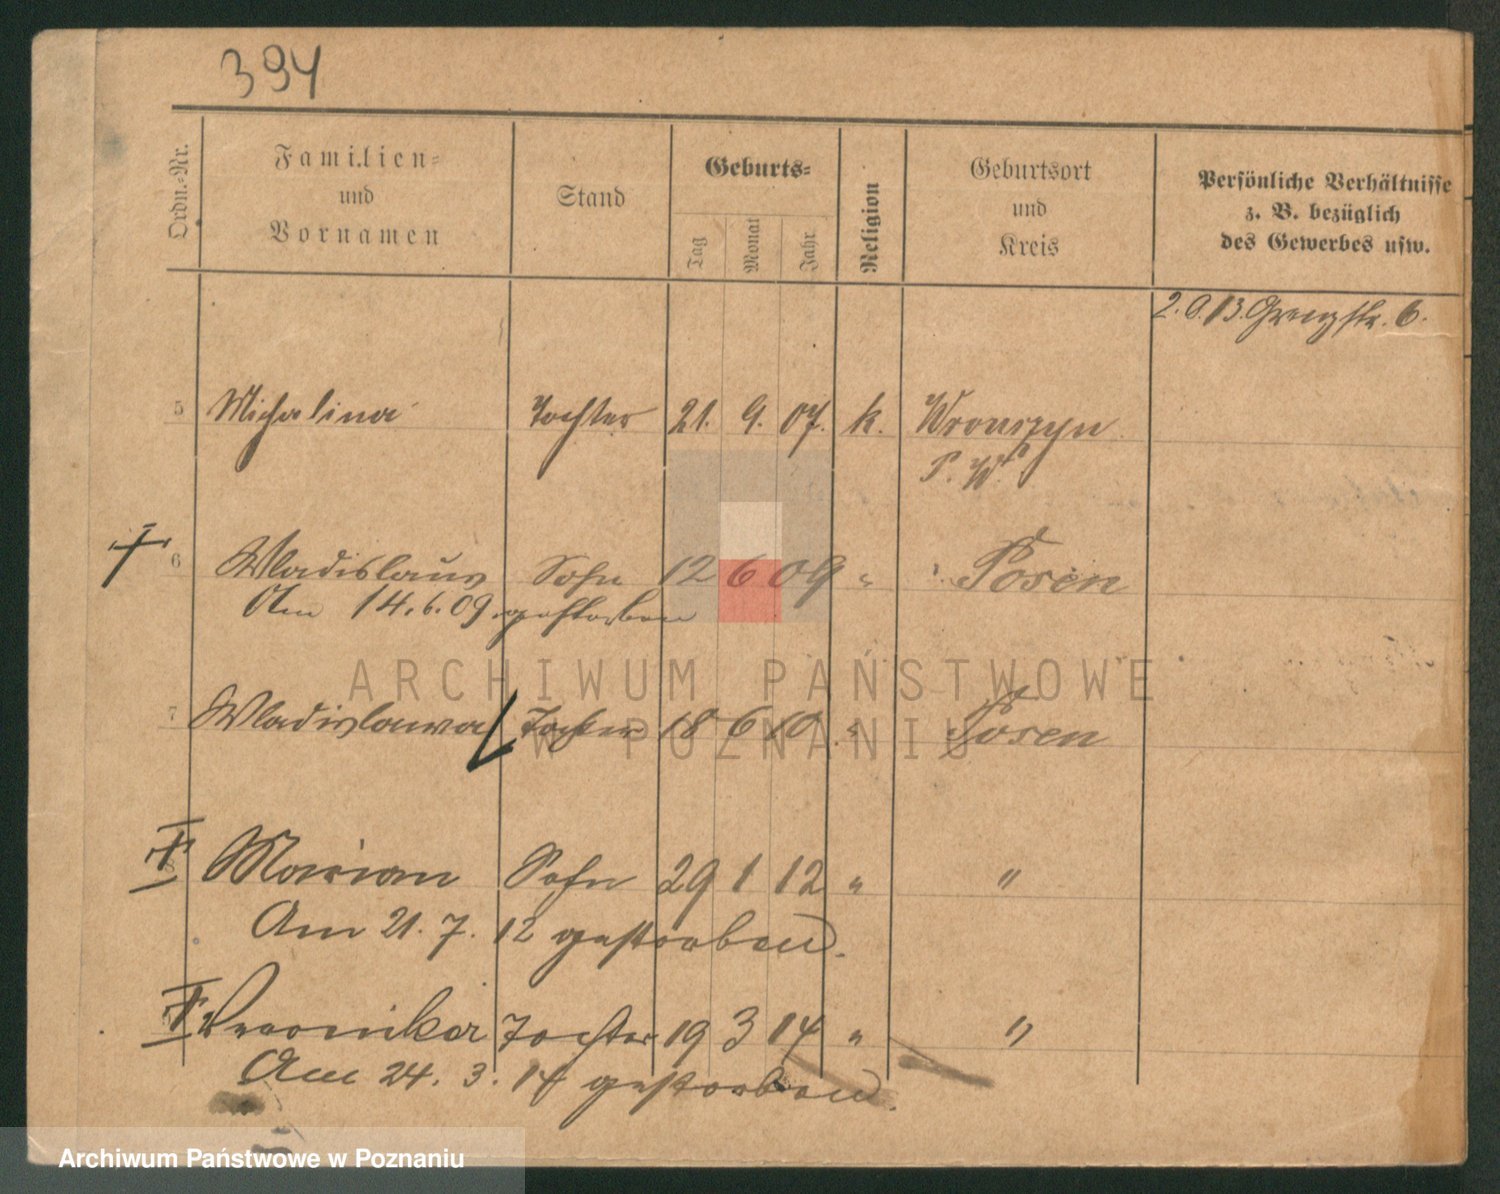 394
Ordn.-Nr.
Familien-
und
Vornamen
Stand
Geburts-
Tag
Monat
Jahr
Religion
Geburtsort
und
Kreis
Persönliche Verhältnisse
z. B. bezüglich
des Gewerbes usw.
2.9.13. Grenzstr. 6.
5 Michalina Tochter 21. 9. 07. k. Wronczyn
P. W.
6 Wladislaus Sohn 12 6 09 " Posen
Am 14.6.09. gestorben
7 Wladislawa Tochter 18 6 10 " Posen
8 Marian Sohn 29 1 12 " "
Am 21. 7. 12 gestorben.
Veronika Tochter 19 3 14 " "
Am 24. 3. 14 gestorben.
ARCHIWUM PAŃSTWOWE
W POZNANIU
Archiwum Państwowe w Poznaniu